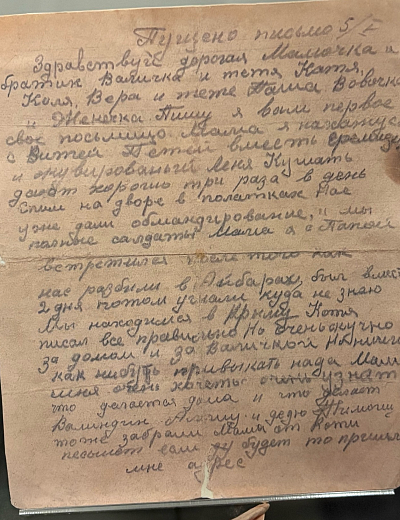 Пущено письмо 5/I
Здравствуй дорогая Мамочка и
братик Валичка и тетя Катя,
Коля, Вера и тетя Паша Вовочка
и Женечка Пишу я вам первое
свое посьмицо Мама я нахожус
с Витей Петей вместь
и Меня Кушать
дают хорошо три раза в день
Спим на дворе в палатках Нас
уже дали обмандирование, и мы
полные салдаты Мама я с Папой
встретился после того как
нас разбили в Айбарах, был вмест
2 дня потом угнали куда не знаю
Мы находимся в Крыму Котя
писал все правильно Но очень скучно
За домом и За Валичкой Но ничего
как нибуть привыкать нада Мам
мня очень хочеть очень узнат
что делается дома и что делает
Валиндин и дедю Тимоши
тоже забрали Мама от Коти
письмо вам будет то пришли
мне адрес